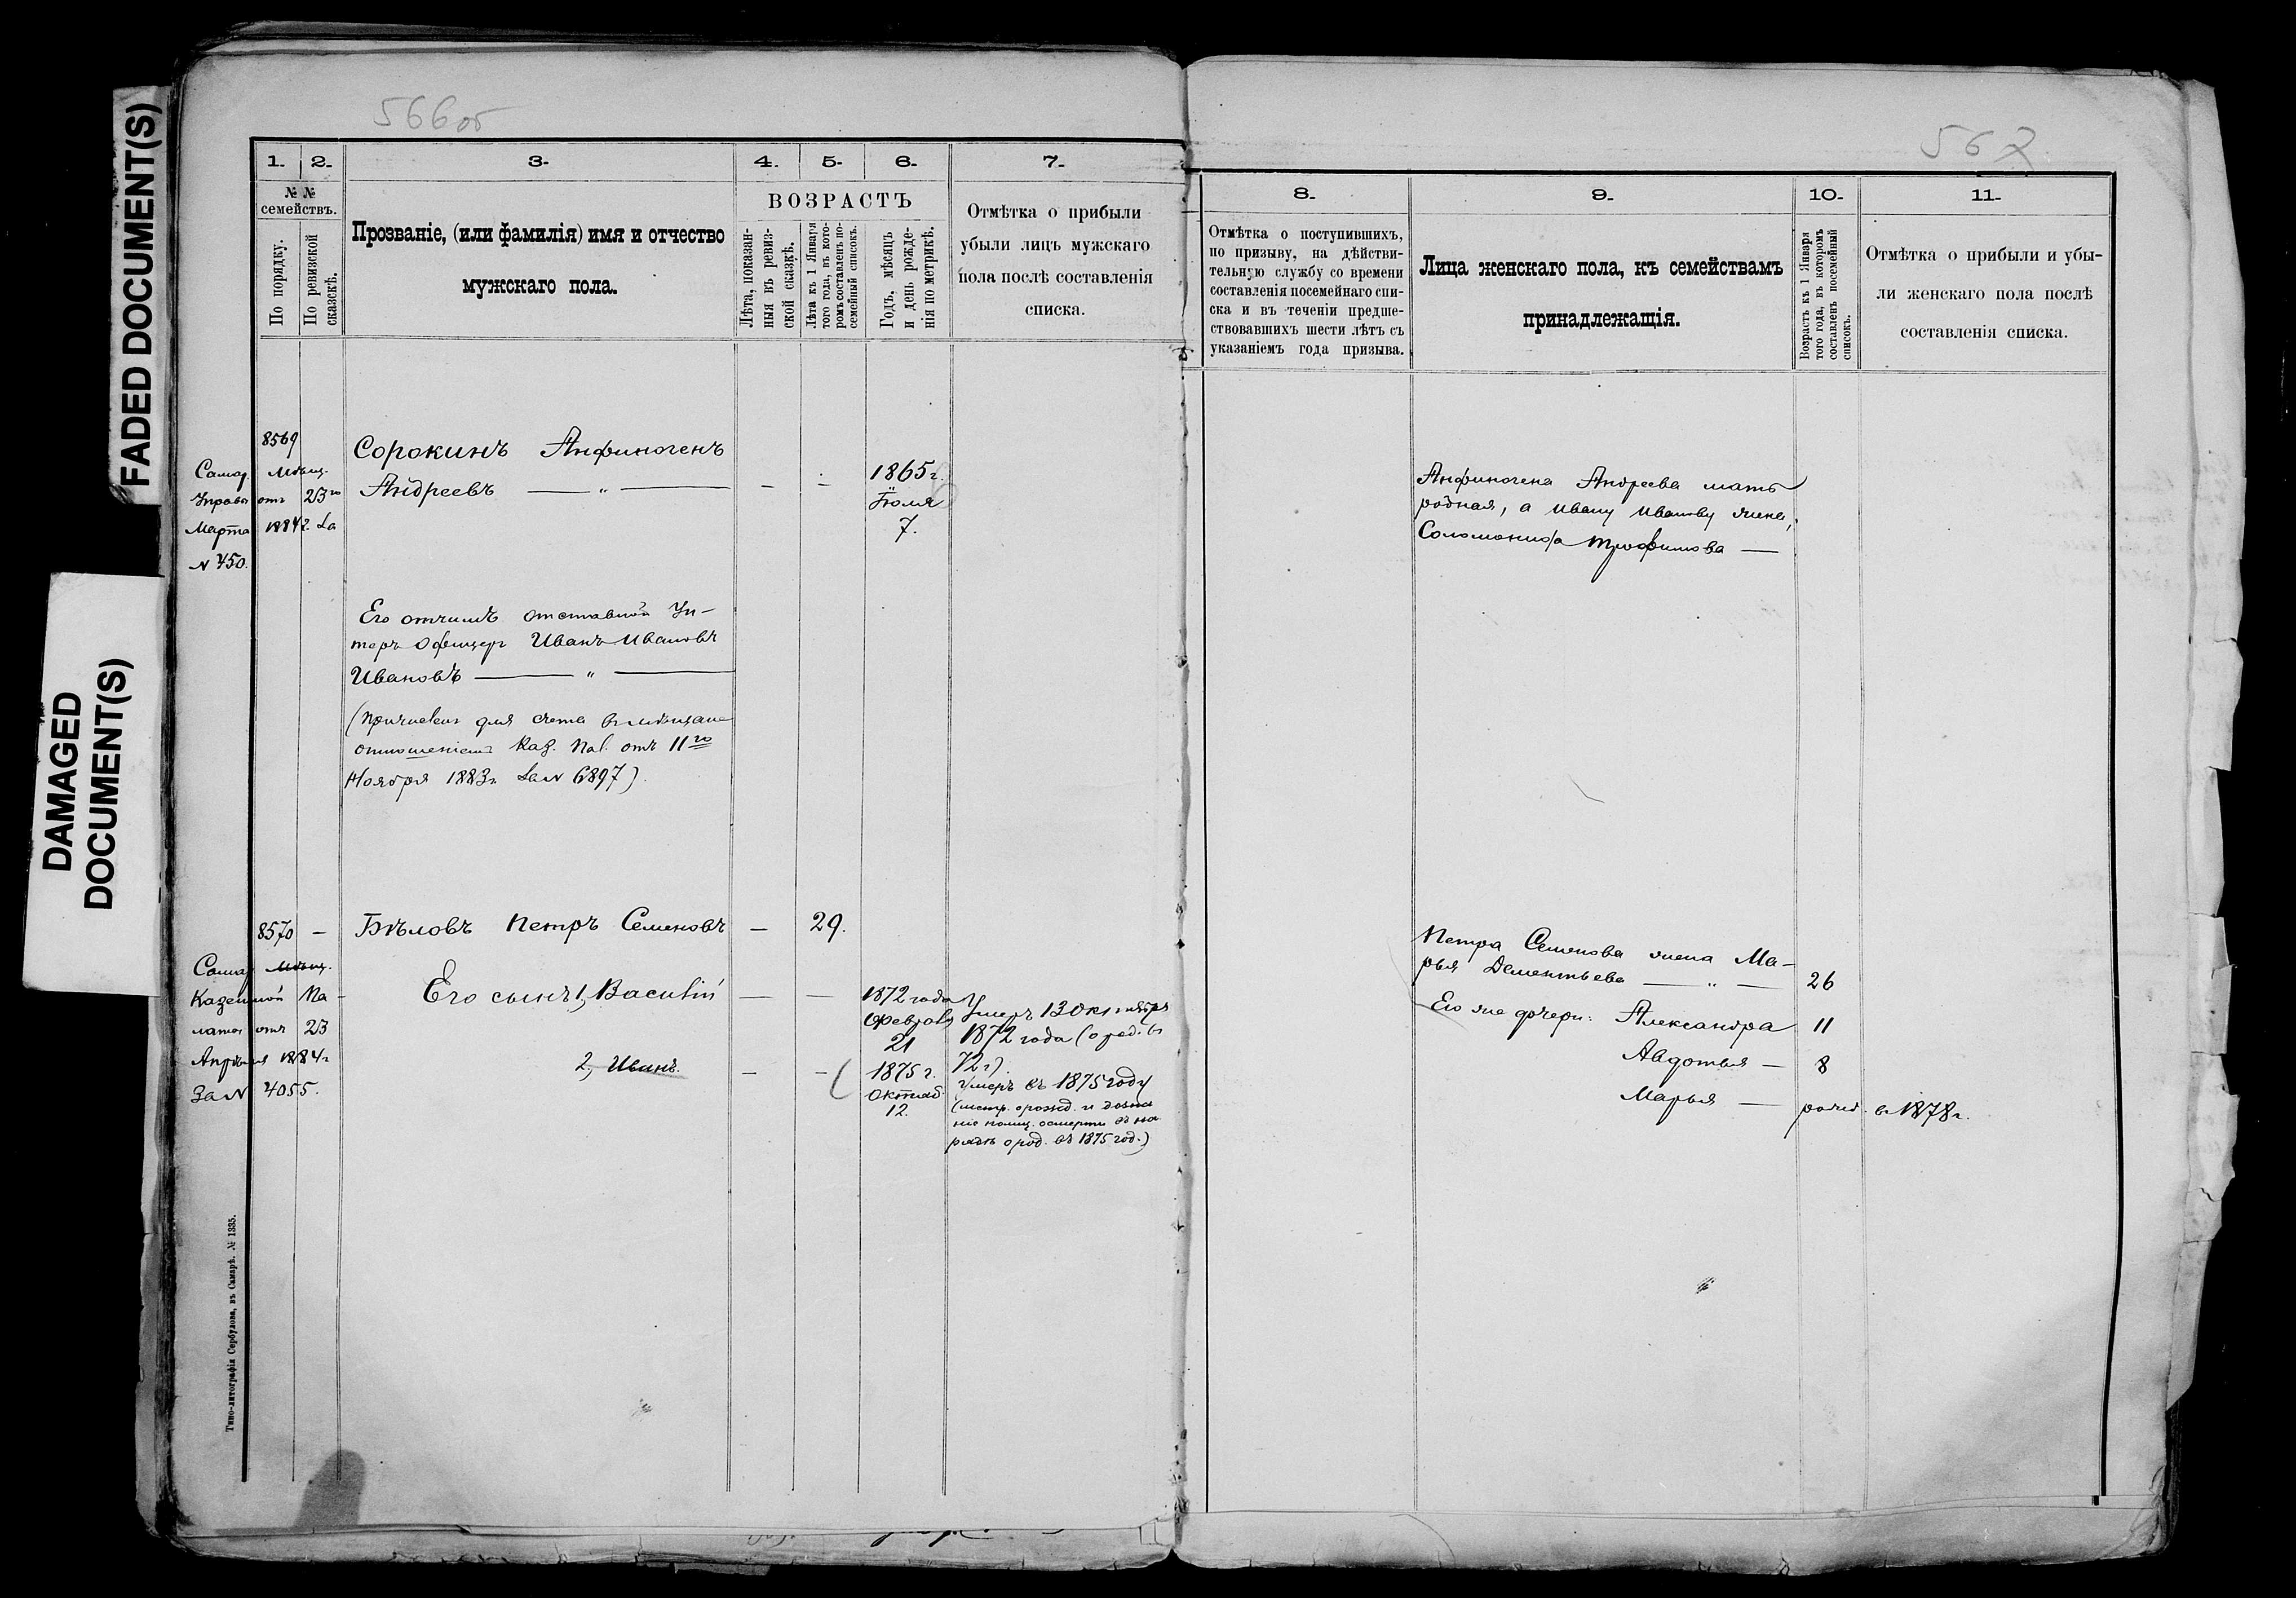 FADED DOCUMENT(S)
DAMAGED
DOCUMENT(S)
566об
1.
2.
3.
4.
5.
6.
7.
№ №
семействъ.
По порядку.
По ревизской
сказкѣ.
Прозваніе, (или фамилія) имя и отчество
мужскаго пола.
ВОЗРАСТЪ
Лѣта, показан-
ныя въ ревиз-
ской сказкѣ.
Лѣта къ 1 Января
того года, въ кото-
ромъ составленъ по-
семейный списокъ.
Годъ, мѣсяцъ
и день рожде-
нія по метрикѣ.
Отмѣтка о прибыли
убыли лицъ мужскаго
пола послѣ составленія
списка.
8569
Самар. Мѣщ.
Управы отъ 23го
Марта 1884г. за
№ 450.
Сорокинъ Анфиногенъ
Андреевъ — „ —
1865г.
Іюля
7.
Его отчимъ отставной Ун-
теръ офицеръ Иванъ Ивановъ
Ивановъ — „ —
(Причислен для счета въ мѣщане
отношеніемъ Каз. Пал. отъ 11го
Ноября 1883г. за № 6897).
8570 —
Самар. Мѣщ.
Казенной Па-
латы отъ 23
Апрѣля 1884г
За № 4055.
Бѣловъ Петръ Семеновъ — 29.
Его сынъ 1, Василій — —
1872 года
Февраля
21
Умеръ 13 октября
1872 года (о род. въ
72 г.)
2, Иванъ. — —
1875 г.
Октяб.
12.
Умеръ въ 1875 году
(метр. о рожд. и дозна
ніе полиц. о смерти въ на
рядѣ о род. въ 1875 год.)
Типо-литографія Сербулова, въ Самарѣ. № 1335.
567
8.
9.
10.
11.
Отмѣтка о поступившихъ,
по призыву, на дѣйстви-
тельную службу со времени
составленія посемейнаго спи-
ска и въ теченіи предше-
ствовавшихъ шести лѣтъ съ
указаніемъ года призыва.
Лица женскаго пола, къ семействамъ
принадлежащія.
Возрастъ къ 1 Января
того года, въ которомъ
составленъ посемейный
списокъ.
Отмѣтка о прибыли и убы-
ли женскаго пола послѣ
составленія списка.
Анфиногена Андреева мать
родная, а Ивану Иванову жена,
Соломонида Трофимова —
Петра Семенова жена Ма-
рья Дементьева — „ — 26
Его же дочери: Александра 11
Авдотья — 8
Марья — родил. в 1878г.